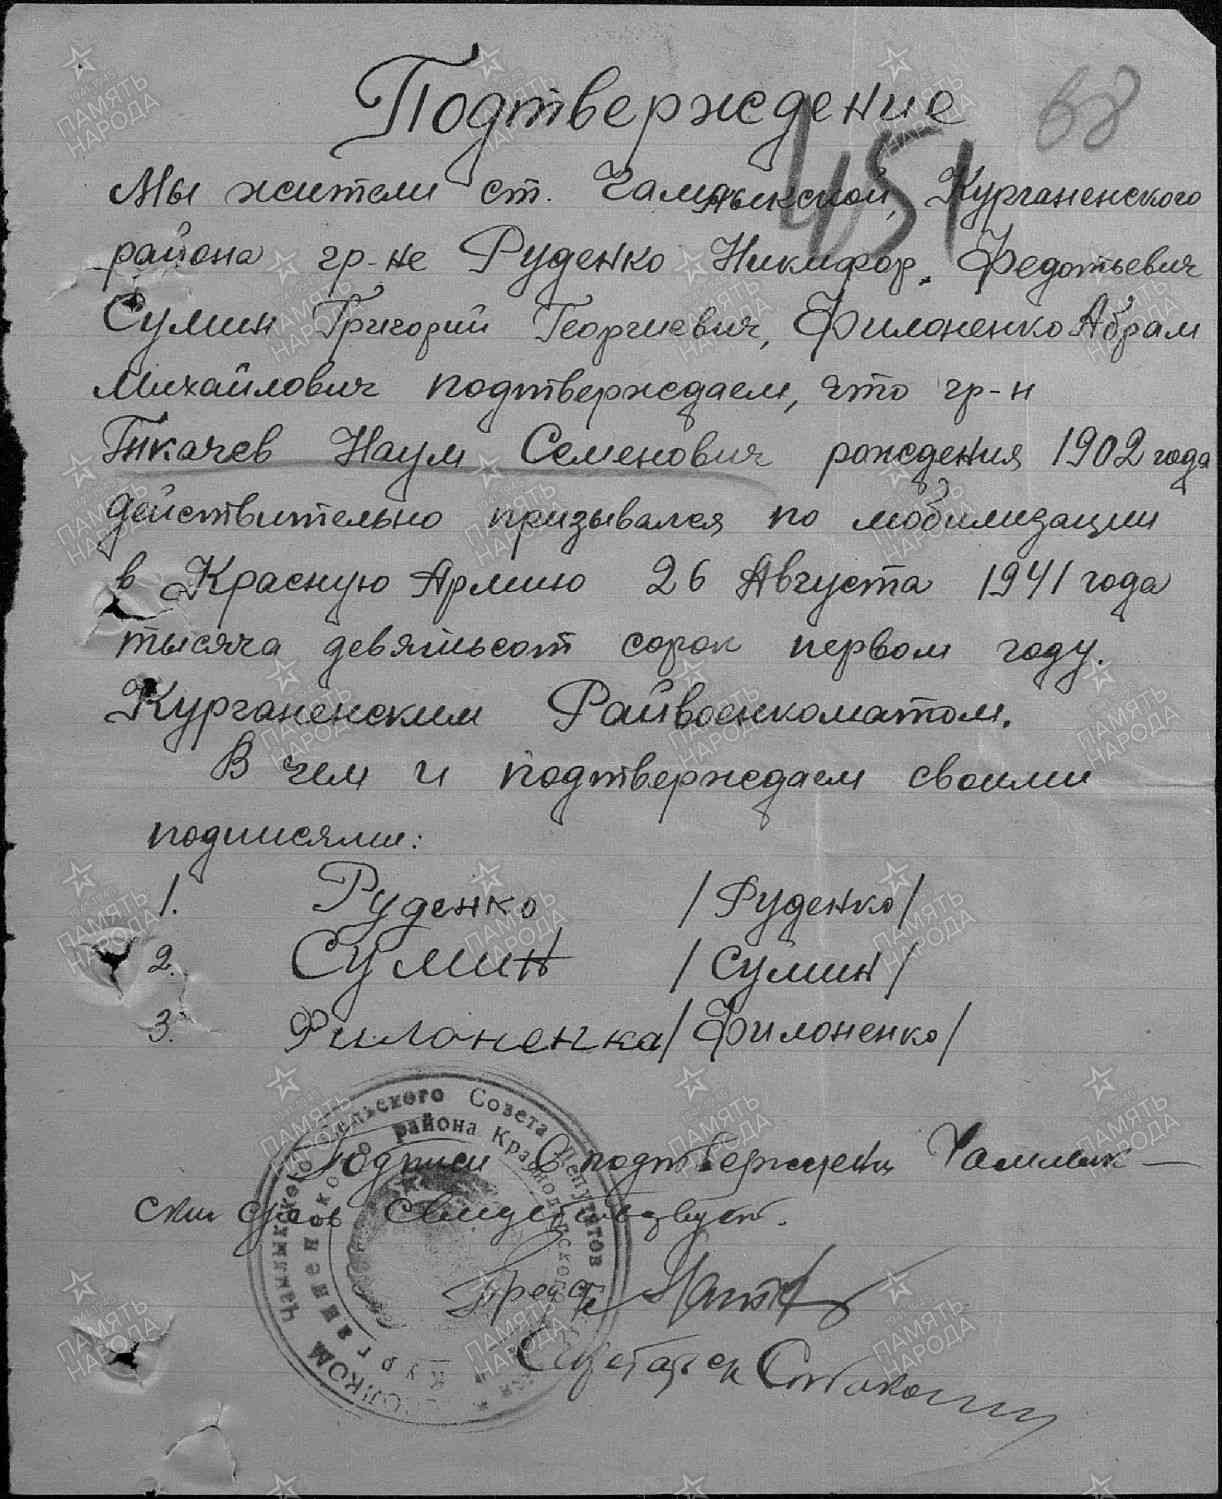 Подтверждение
68
451
Мы жители ст. Чамлыкской, Курганенского
района гр-не Руденко Никифор Федотьевич
Сумин Григорий Георгиевич, Филоненко Абрам
Михайлович подтверждаем, что гр-н
Ткачев Наум Семенович рождения 1902 года
действительно призывался по мобилизации
в Красную Армию 26 Августа 1941 года
тысяча девятьсот сорок первом году.
Курганенским Райвоенкоматом.
В чем и подтверждаем своими
подписями:
1. Руденко /Руденко/
2. Сумин /Сумин/
3. Филоненка /Филоненко/
Подписи подтверждени Чамлык-
ский свидетельствует.
Пред
Секретарь
Чамлыкского сельского Совета Депутатов
Курганенского района Краснодарского
ПАМЯТЬ
НАРОДА